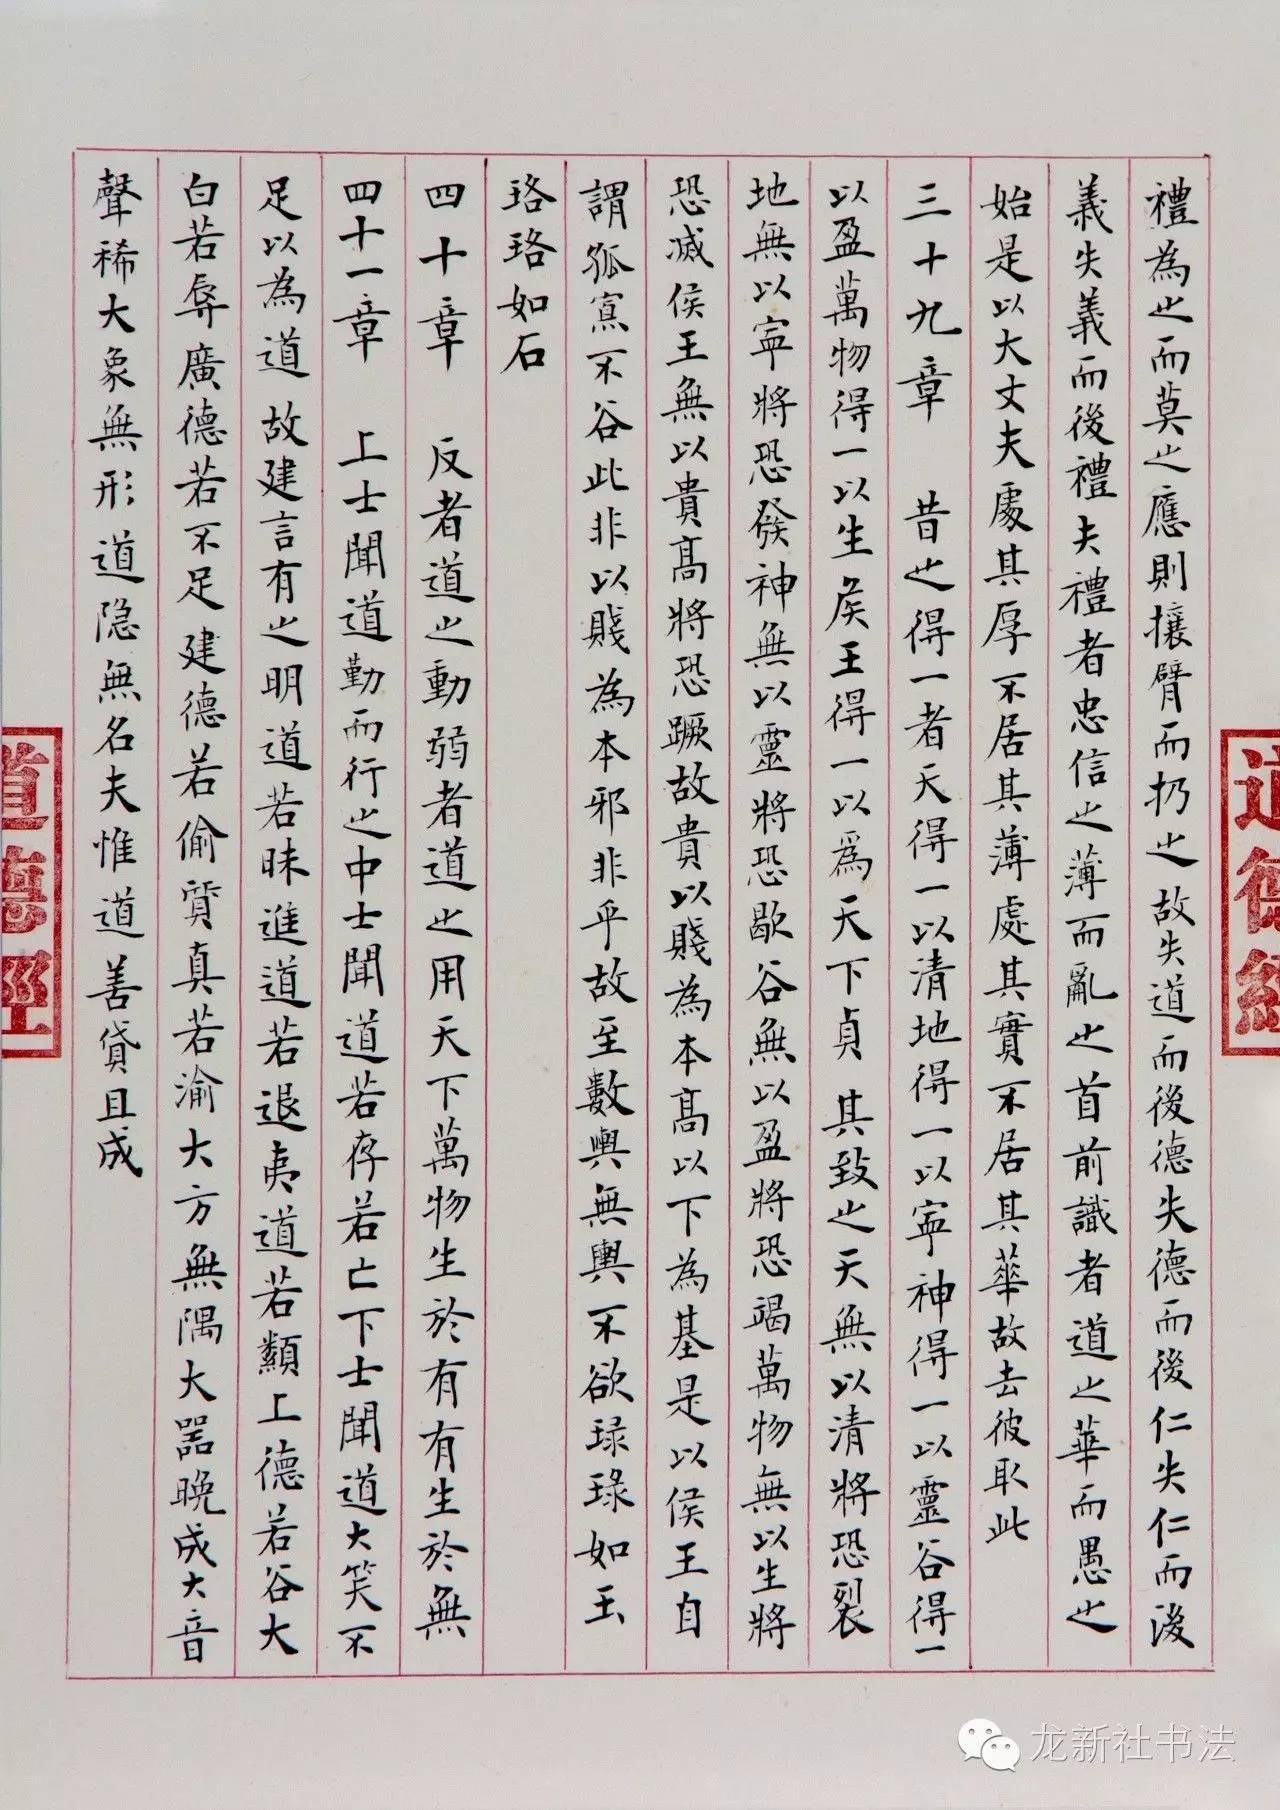 禮為之而莫之應則攘臂而扔之故失道而後德失德而後仁失仁而後
義失義而後禮夫禮者忠信之薄而亂之首前識者道之華而愚之
始是以大丈夫處其厚不居其薄處其實不居其華故去彼取此
三十九章　昔之得一者天得一以清地得一以寧神得一以靈谷得一
以盈萬物得一以生侯王得一以爲天下貞 其致之天無以清將恐裂
地無以寧將恐發神無以靈將恐歇谷無以盈將恐竭萬物無以生將
恐滅侯王無以貴高將恐蹶故貴以賤為本高以下為基是以侯王自
謂孤寡不谷此非以賤為本邪非乎故至數輿無輿不欲琭琭如玉
珞珞如石
四十章　反者道之動弱者道之用天下萬物生於有有生於無
四十一章　上士聞道勤而行之中士聞道若存若亡下士聞道大笑不
足以為道 故建言有之明道若昧進道若退夷道若纇上德若谷大
白若辱廣德若不足建德若偷質真若渝大方無隅大器晚成大音
聲稀大象無形道隐無名夫惟道善貸且成
道德經
道德經
龙新社书法